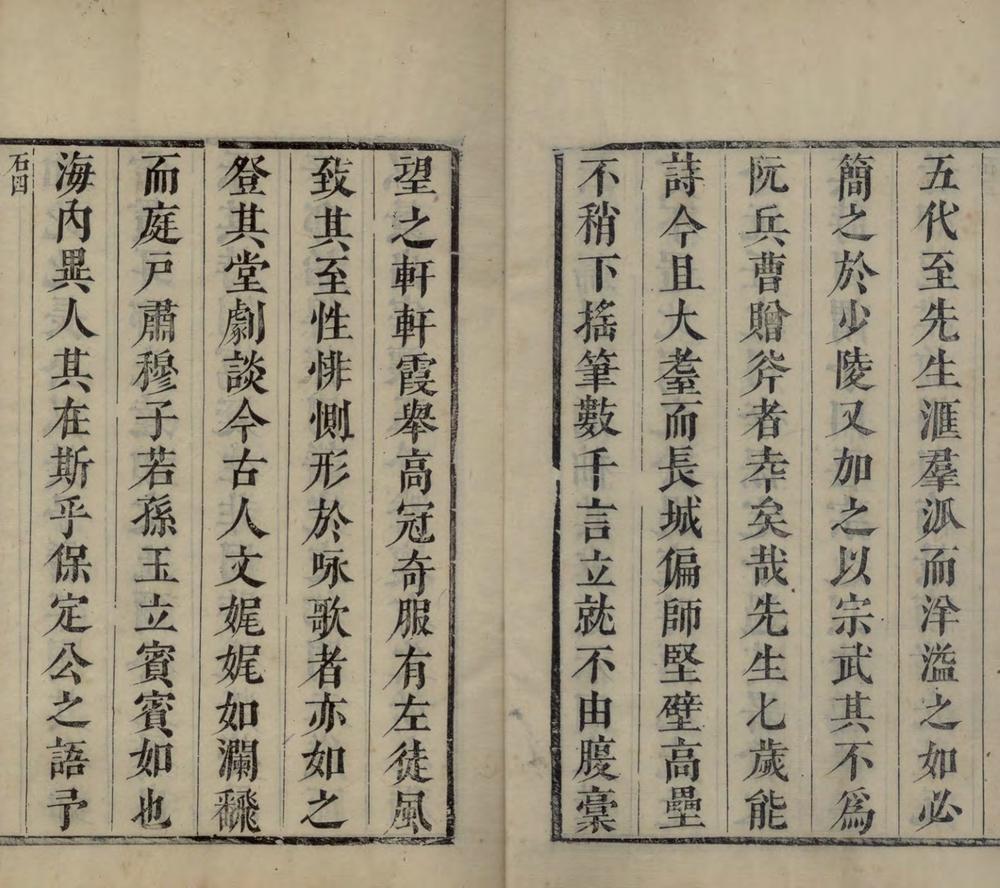 五代至先生滙羣泒而泮溢之如必
簡之於少陵又加之以宗武其不爲
阮兵曹贈斧者幸矣哉先生七歲能
詩今且大耋而長城偏師堅壁高壘
不稍下搖筆數千言立就不由腹稾
望之軒軒霞舉高冠奇服有左徒風
致其至性悱惻形於咏歌者亦如之
登其堂劇談今古人文娓娓如瀾飜
而庭戸肅穆子若孫玉立賓賓如也
海內異人其在斯乎保定公之語予
石四